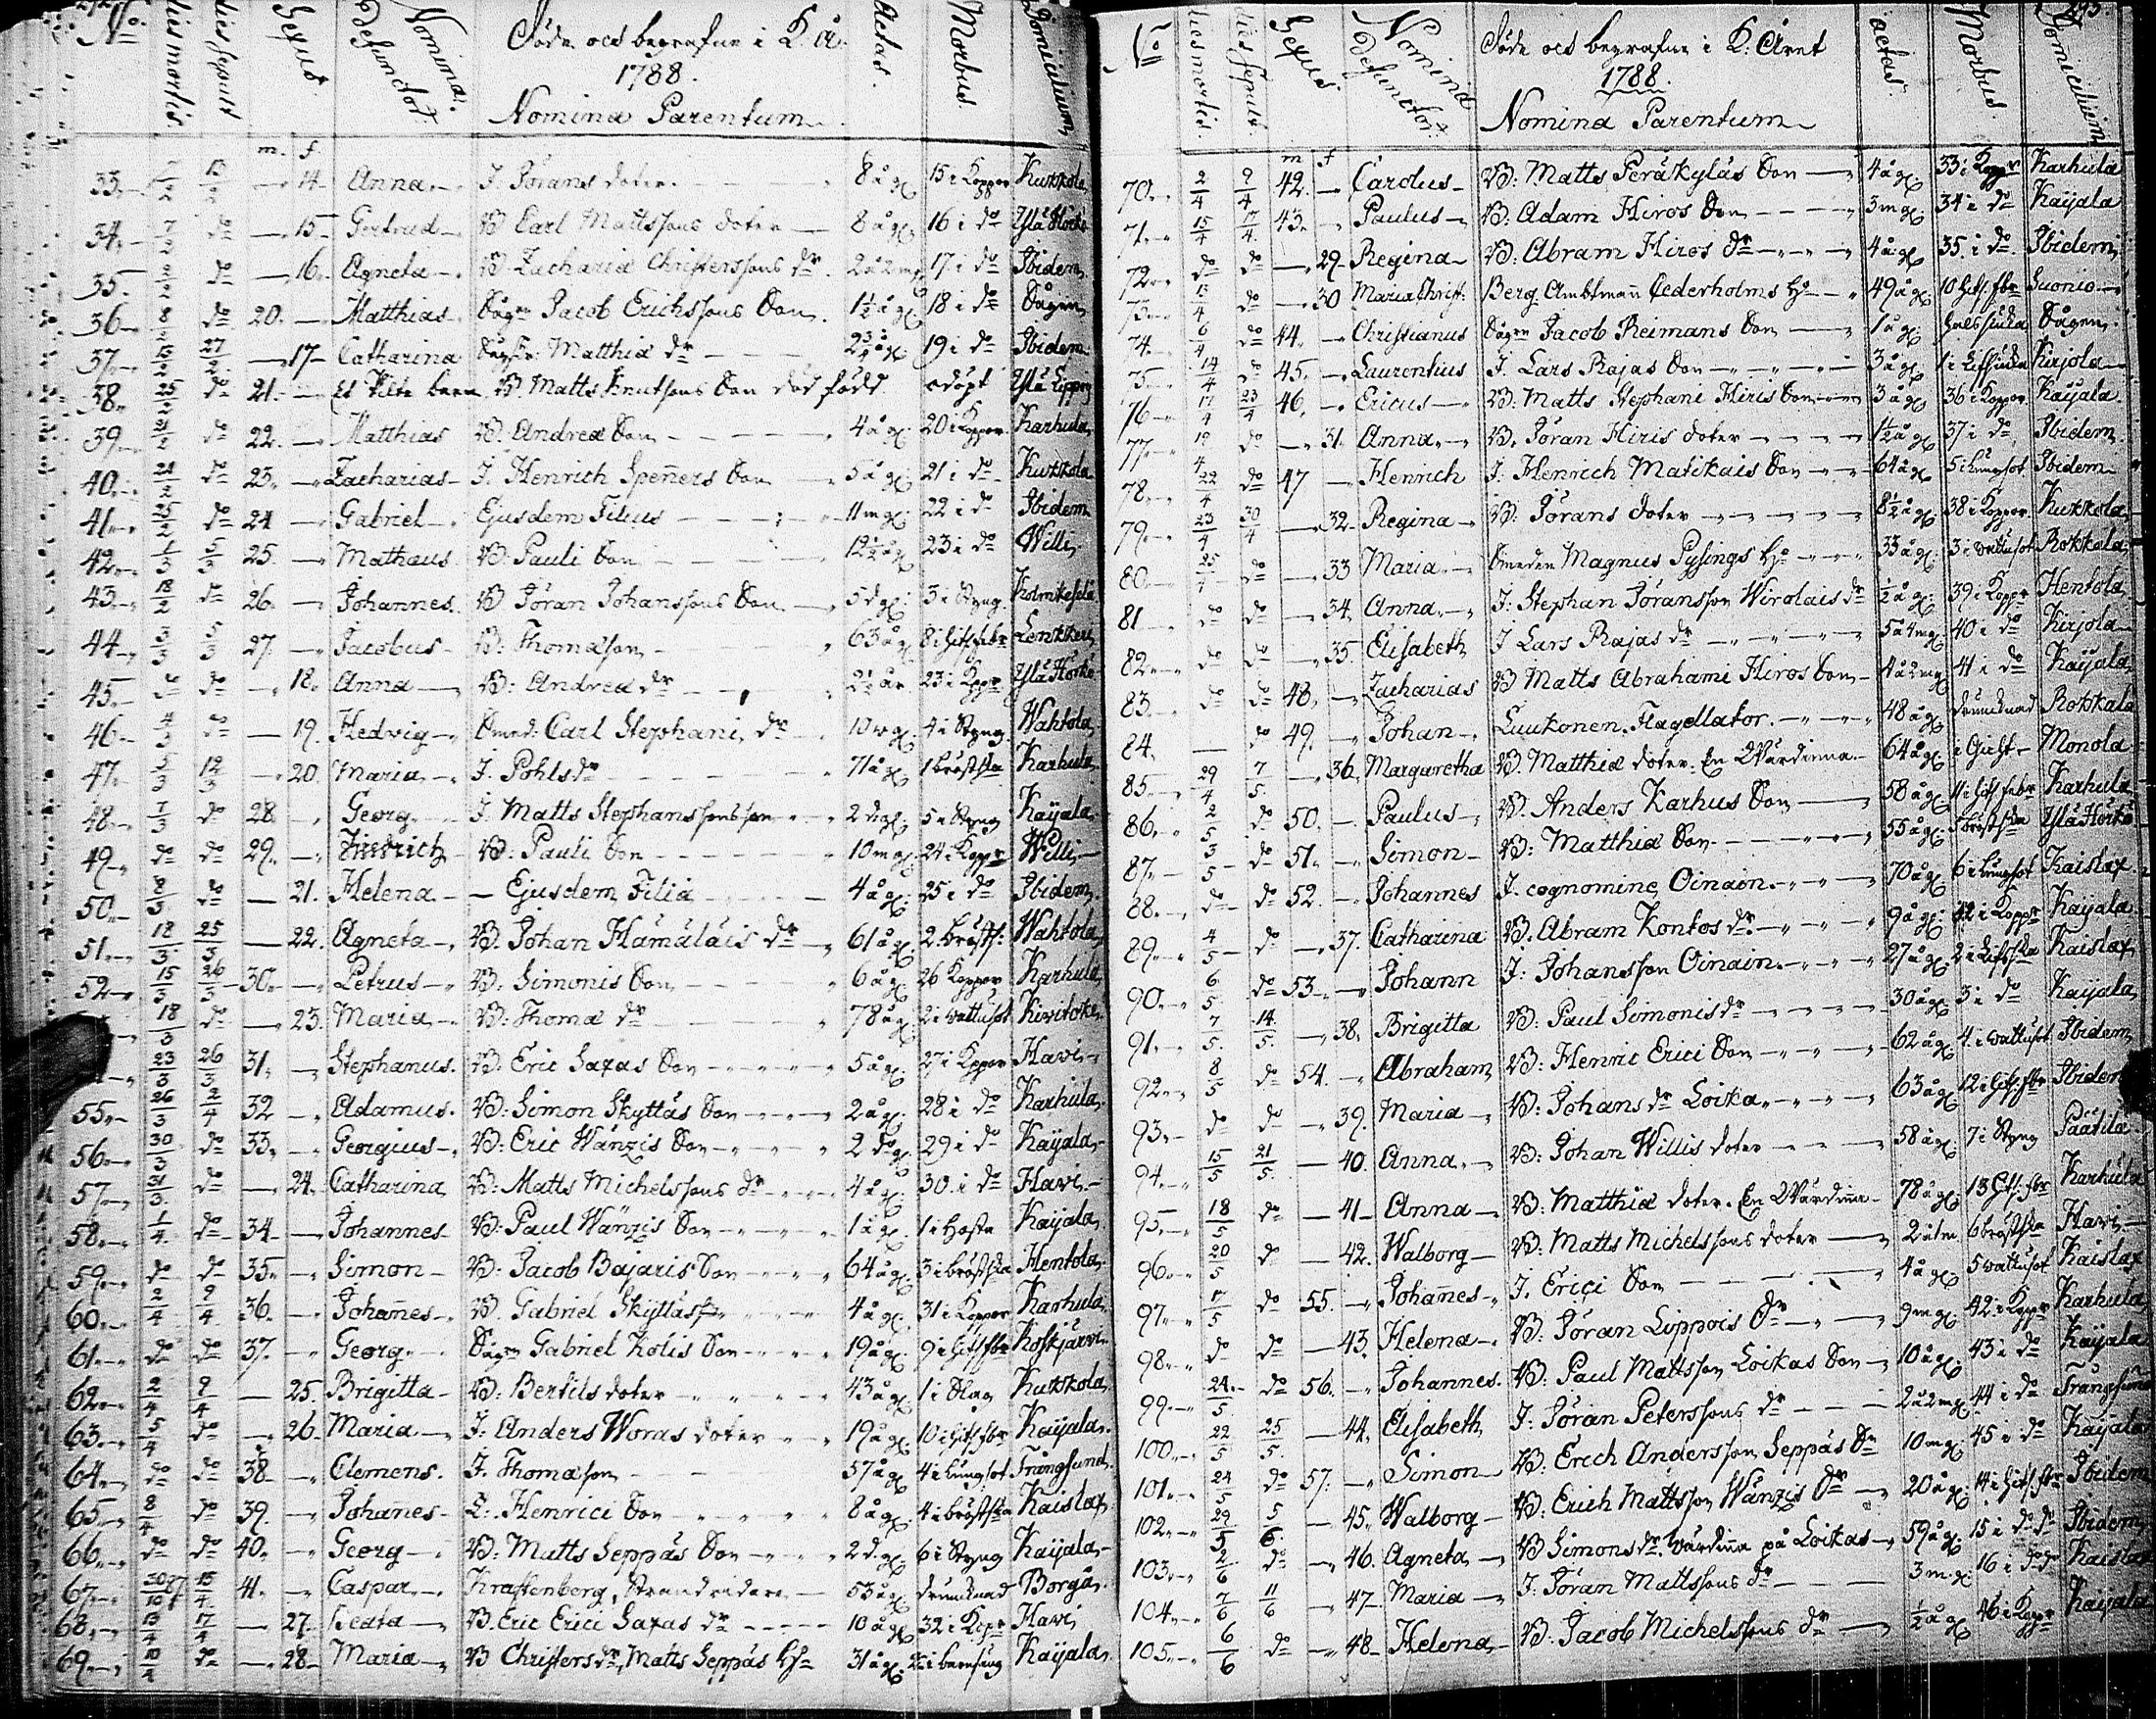 No dies mortis dies sepult Sexus Nomina defunctor Döde och begrafne i K. År Aetas Morbus Domicilium
1788.
Nomina Parentum
m. f.
33 13/2 14 Anna J. Jörans doter 8 åg. 15 i Koppor Kukkola
34 7/2 do 15 Gertrud B. Carl Mattssons doter 8 åg. 16 i do Ylä Hörkö
35 2/2 do 16 Agneta B. Zachariæ Christerssons dr 2 å 2 mg. 17 i do Ibidem
36 8/2 do 20 Matthias Sågn Jacob Erichssons Son 1½ åg. 18 i do Sågen
37 27/2 17 Catharina Matthiæ dr 19 i do Ibidem
38 25/2 do 21 Et Piltebarn B. Matts Knutssons Son död född odöpt
39 do 22 Matthias B. Andreæ Son 4 åg. 20 i Koppor Karhula
40 21/2 do 23 Zacharias J. Henrich Speñers Son 5 åg. 21 i do Kukkola
41 25/2 do 24 Gabriel Ejusdem Filius 11 mg. 22 i do Ibidem
42 1/3 5/3 25 Mathæus B. Pauli Son 12½ åg. 23 i do Willi
43 18/2 do 26 Johannes B. Jöran Johanssons Son 5 dg. 3 i Styng
44 3/3 5/3 27 Jacobus B. Thomæson 63 åg. 8 i Hets.febr
45 do 18 Anna B. Andreæ dr 2½ år 23 i Koppr Ylä Hörkö
46 4/3 do 19 Hedvig Smed. Carl Stephani dr 10 wg. 4 i Styng Wahtola
47 5/3 12/3 20 Maria J. Pohls dr 71 åg. 1 bröstska Karhula
48 7/3 do 28 Georg J. Matts Stephanssons son 2 dg. 5 i Styng Kaÿala
49 do do 29 Fredrich B. Pauli Son 10 mg. 24 i Koppr Willi
50 8/3 do 21 Helena Ejusdem Filia 4 åg. 25 i do Ibidem
51 18/3 25/3 22 Agneta B. Johan Hämäläis dr 61 åg. 2 bröst: Wahtola
52 15/3 26/3 30 Petrus B. Simonis Son 6 åg. 26 Koppor Karhula
18/3 do 23 Maria B. Thomæ dr 78 åg. 2 i wattusot
23/3 26/3 31 Stephanus B. Eric Saxas Son 5 åg. 27 i Koppor Havi
55 26/3 2/4 32 Adamus B. Simon Skyttäs Son 2 åg. 28 i do Karhula
56 30/3 do 33 Georgius B. Eric Wänzis Son 2 dg. 29 i do Kaÿala
57 31/3 do 24 Catharina B. Matts Michelssons dr 4 åg. 30 i do Havi
58 1/4 do 34 Johannes B. Paul Wänzis Son 1 åg. 1 i Hosta Kaÿala
59 do do 35 Simon B. Jacob Bajaris Son 64 åg. 3 i bröstska Hentola
60 2/4 9/4 36 Johañes B. Gabriel Skÿttäs 4 åg. 31 i Koppor Karhula
61 do do 37 Georg Sågn Gabriel Kolis Son 19 åg. 9 i Hets.fbr Koskjärvi
62 2/4 9/4 25 Brigitta B. Bertils doter 43 åg. 1 i Slag Kukkola
63 5/4 do 26 Maria J. Anders Woras doter 19 åg. 10 i Hets.fbr Kaÿala
64 do do 38 Clemens J. Thomæson 57 åg. 4 i Lungsot Trångsund
65 8/4 do 39 Johañes Henrici Son 8 åg. 4 i bröstska Kaislax
66 do do 40 Georg B. Matts Seppäs Son 2 dg. 6 i Styng Kaÿala
67 15/4 41 Caspar Kraftenberg, Strandridare 53 åg. drunknad Borgå
68 13/4 17/4 27 Beata B. Eric Erici Saxas dr 10 åg. 32 i Kopr Havi
69 10/4 do 28 Maria B. Christers dr, Matts Seppäs H. 31 åg. i barnsäng Kaÿala
No dies mortis dies sepult. Sexus Nomina defunctor. Döde och begrafne i K: Året ætas Morbus Domicilium
1788.
Nomina Parentum
m f
70 2/4 9/4 42 Carolus B: Matts Peräkyläs Son 4 åg. 33 i Koppr Karhula
71 15/4 17/4 43 Paulus B: Adam Hiros Son 3 mg. 34 i do Kaÿala
72 do do 29 Regina B: Abram Hiros dr 4 åg. 35 i do Ibidem
73 13/4 do 30 Maria Christ: Berg. Ambtmañ Cederholms H. 49 åg. 10 Hets.fbr Suonio
74 6/4 do 44 Christianus Sågn Jacob Reimans Son 1 åg. halssiuka Sågen
75 14/4 do 45 Laurentius J. Lars Rajas Son 3 åg. Kirjola
76 17/4 23/4 46 Ericus B: Matts Stephani Hiris Son 3 åg. 36 i Koppor Kaÿala
77 19/4 do 31 Anna B. Jöran Hiris doter 1½ åg. 37 i do Ibidem
78 22/4 do 47 Henrich J. Henrich Matikais Son 64 åg. 5 i Lungsot Ibidem
79 23/4 30/4 32 Regina B. Jörans doter 8½ åg. 38 i Koppor Kukkola
80 25/4 do 33 Maria Smeden Magnus Pysings H. 33 åg. 3 i wattusot Rokkala
81 do do 34 Anna J: Stephan Jöransson Wirolais dr ½ åg. 39 i Koppr Hentola
82 do do 35 Elisabeth J Lars Rajas dr 5 å 4 mg. 40 i do Kirjola
83 do do 48 Zacharias B Matts Abrahami Hiros Son 4 å 2 mg. 41 i do Kaÿala
84 do 49 Johan Luukonen. Flagellator. 48 åg. drunknad Rokkala
85 29/4 7/5 36 Margaretha B. Matthiæ doter. En Wärdinna 64 åg. i Gicht Monola
86 2/5 do 50 Paulus B. Anders Karhus Son 58 åg. 11 i Hets febr Karhula
87 3/5 do 51 Simon B: Matthiæ Son 55 åg. 5 bröstska Ylä Hörkö
88 do do 52 Johannes J. cognomine Oinain 70 åg. 6 i Lungsot Kaislax
89 4/5 do 37 Catharina B. Abram Kontos dr 9 åg. 42 i Koppr Kaÿala
90 6/5 do 53 Johann J: Johansson Oinain 27 åg. Kaislax
91 7/5 14/5 38 Brigitta B: Paul Simonis dr 30 åg. 3 i do Kaÿala
92 8/5 do 54 Abraham B: Henric Erici Son 62 åg. 4 i wattusot Ibidem
93 do do 39 Maria B: Johans dr Loika 63 åg. 12 i Hets.fbr Ibidem
94 15/5 21/5 40 Anna B: Johan Willis doter 58 åg. 7 i Styng Päätilä
95 18/5 do 41 Anna B: Matthiæ doter. En Wärdiña 78 åg. 13 Hets.fbr Karhula
96 20/5 do 42 Walborg B: Matts Michelssons doter 6 bröstska Havi
97 17/5 do 55 Johañes J. Erici Son 4 åg. 5 wattusot Kaislax
98 do do 43 Helena B: Jöran Lippois dr 9 mg. 42 i Koppr Karhula
99 24/5 do 56 Johannes B: Paul Mattsson Loikas Son 10 åg. 43 i do Kaÿala
100 22/5 25/5 44 Elisabeth J: Jöran Peterssons dr 2 å 2 mg. 44 i do Trångsund
101 24/5 do 57 Simon B: Erich Andersson Seppäs Sn 10 mg. 45 i do Kaÿala
102 29/5 5/6 45 Walborg B: Erich Mattsson Wänzis dr 20 åg. 14 i Hets.fbr Ibidem
103 2/6 do 46 Agneta B Simons dr. wärdiña på Loikas 59 åg. 15 i do do Ibidem
104 7/6 11/6 47 Maria J: Jöran Mattssons dr 3 m.g. 16 i do do Kaislax
105 6/6 do 48 Helena B: Jacob Michelssons dr ½ åg. 46 i Koppr Kaÿala